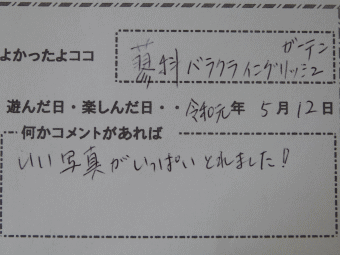 よかったよココ
蓼科 バラクライングリッシュ
ガーデン
遊んだ日・楽しんだ日・・令和元年 5月12日
何かコメントがあれば
いい写真がいっぱいとれました!